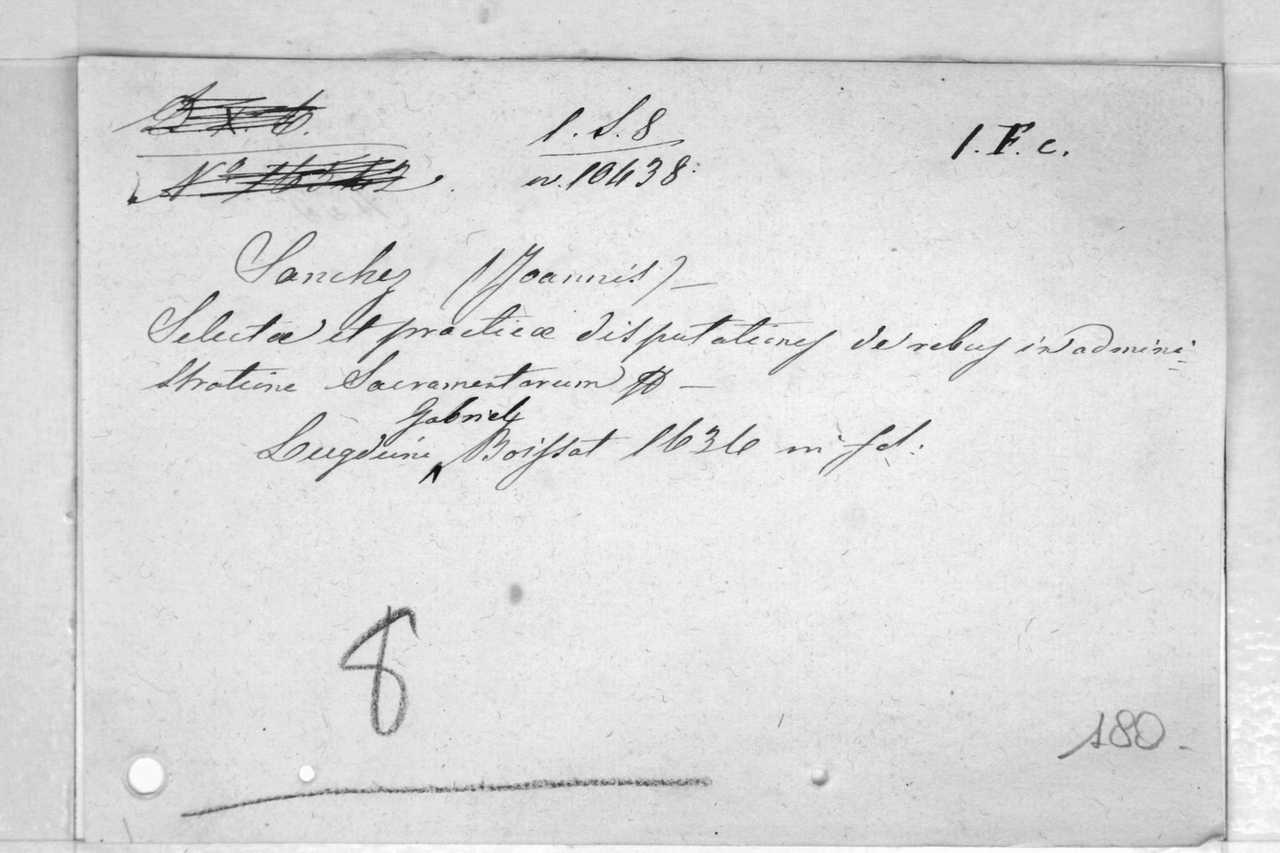 1. S. 8
n. 10438
1. F. c.
Sanchez (Joannis) —
Selectæ et practicæ disputationes de rebus in admini-
stratione Sacramentorum &c —
Gabriel
Lugduni Boissat 1636 in fol.
8
180.